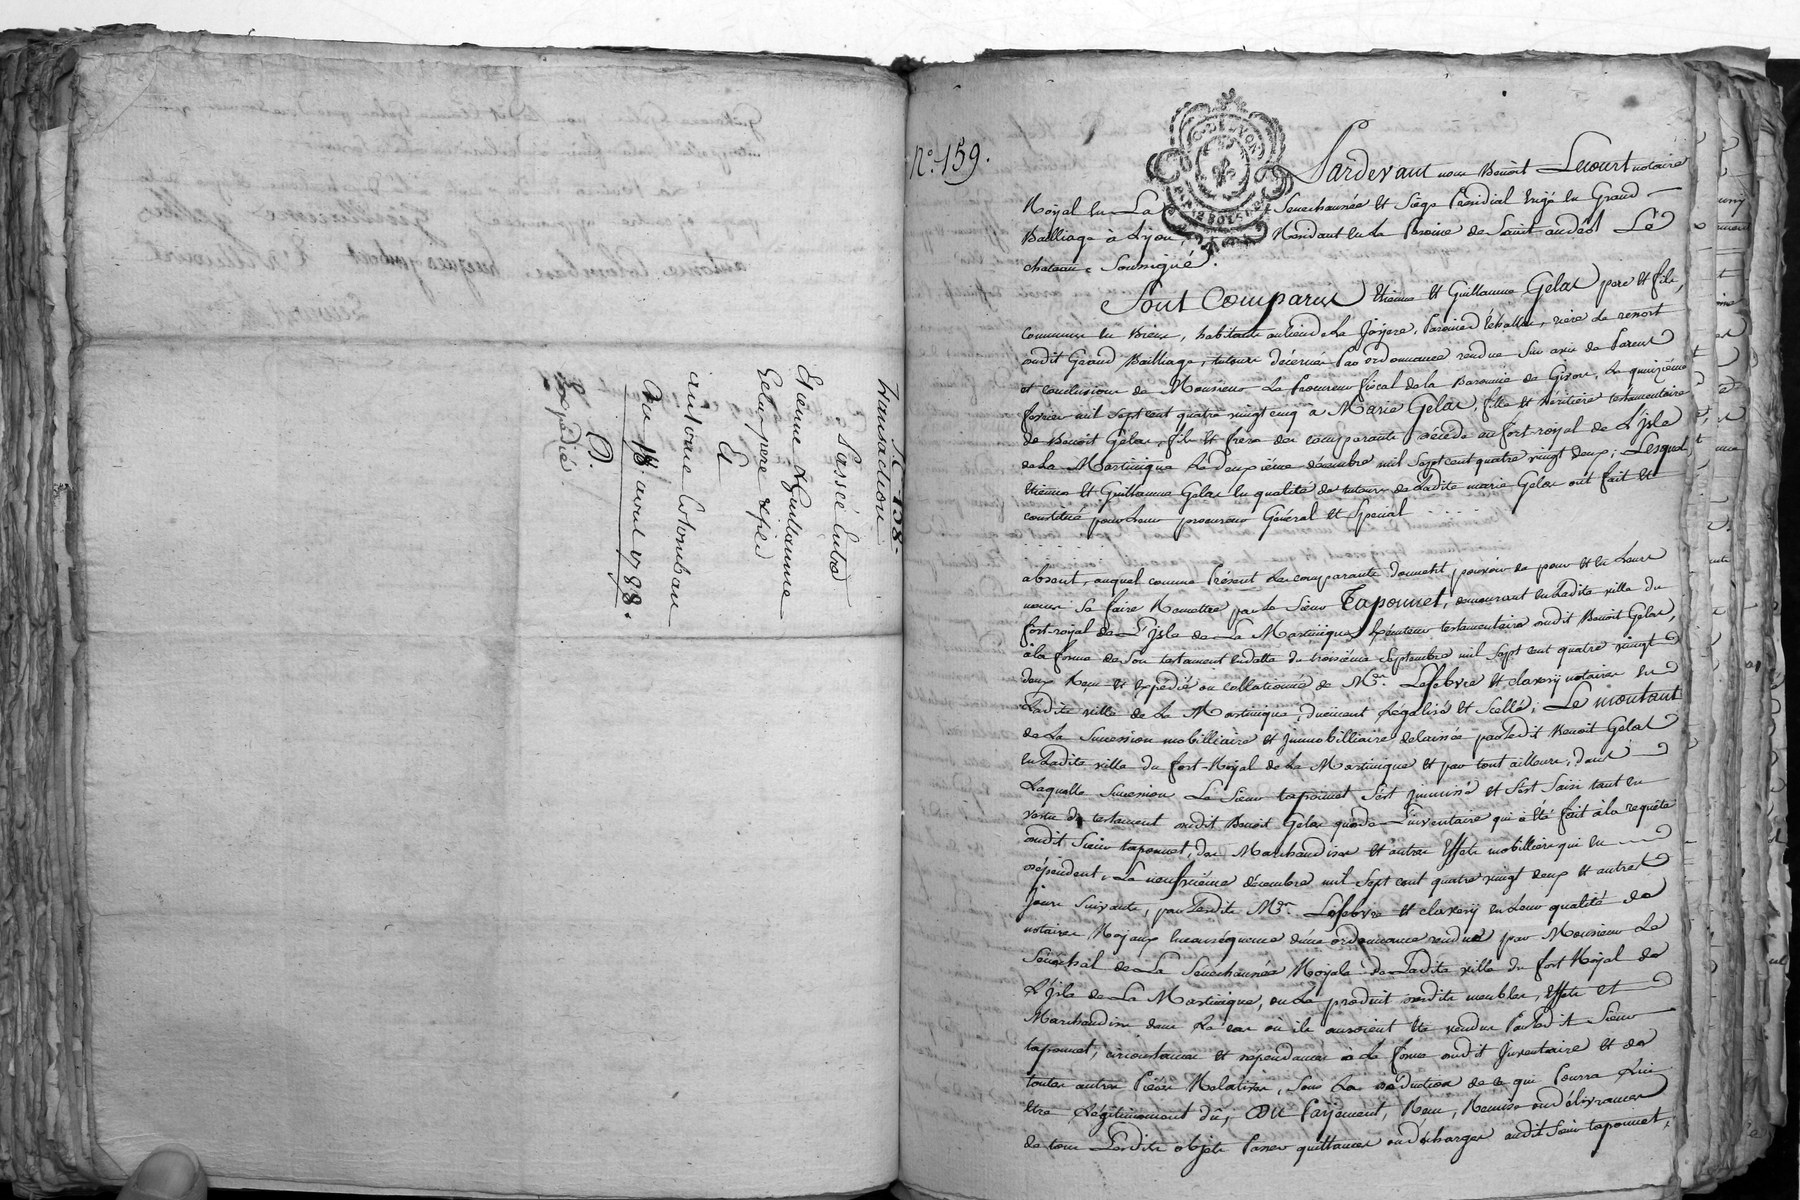 N.o 158.
Transaction
Passée Entre
Etienne & Guillaume
Gelas pere & fils
Et
antoine Colombau
Du 18 avril 1788.
D.
Expedié
N.o 159.
Pardevant nous Benoit Lecourt notaire
Royal en La Senechaussée et Siege Présidial Erigé en Grand
Bailliage à Lyon, Residant en La Paroisse de Saint andéol Le
chateau Soussigné.
Sont Comparus Etienne et Guillaume Gelas pere et fils,
communs en Biens, habitants au lieu de La Joyere, Paroisse d'Echallas, riere le ressort
dudit Grand Bailliage, tuteurs décernés Par ordonnance rendue Sur avis de Parents
et conclusions de Monsieur Le Procureur fiscal de la Baronnie de Givors, Le quinzieme
fevrier mil Sept cent quatre vingt cinq a Marie Gelas, fille et héritiere testamentaire
de Benoit Gelas, fils et frere des comparants décédé au fort royal de L'isle
de La Martinique Le deuxième décembre mil Sept cent quatre vingt deux; Lesquels
Etienne et Guillaume Gelas En qualité de tuteurs de Ladite marie Gelas ont fait et
constitué pour Leur procureur Général et Special
absent, auquel comme Présent Les comparants donnent pouvoir de pour et en Leurs
noms Se faire Remettre par Le Sieur Taponnet, demeurant en Ladite ville du
fort-royal de L'Isle de La Martinique, Executeur testamentaire dudit Benoit Gelas,
à la forme de Son testament En datte du troisième Septembre mil Sept cent quatre vingt
deux Reçu et Expédié ou collationné de Mes. Lefebvre et clavery notaires En
Ladite ville de La Martinique, duëment Légalisé et Scellé; Le montant
de La Succession mobilliaire et Immobilliaire délaissée par Ledit Benoit Gelas
En Ladite ville du fort-Royal de La Martinique et par tout ailleurs, dans
Laquelle Succession Le Sieur taponnet S'est Immiscé et S'est Saisi tant en
vertu du testament dudit Benoit Gelas que de L'inventaire qui a été fait à la requête
dudit Sieur taponnet, des Marchandises et autres Effets mobilliers qui En
dépendent, Le neufvième décembre mil Sept cent quatre vingt deux et autres
Jours Suivants, par Lesdits Mes. Lefebvre et clavery En Leur qualité de
notaires Royaux Enconséquence d'une ordonnance rendue par Monsieur Le
Sénéchal de La Senechaussée Royale de Ladite ville du fort Royal de
L'Isle de La Martinique, ou Le produit desdits meubles, Effets et
Marchandises dans Le cas où ils auroient Eté vendus Par Ledit Sieur
taponnet, circonstances et dependances à La forme dudit Inventaire et de
toutes autres Pièces Relatives, Sous La déduction de ce qui Pourra Lui
Etre Légitimement dû, Du Payement, Reçu, Remise ou délivrance
de tous Lesdits objets Passer quittances ou décharges audit Sieur taponnet,